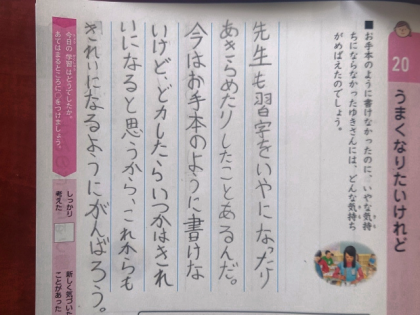 20
うまくなりたいけれど
■お手本のように書けなかったのに、いやな気持
ちにならなかったゆきさんには、どんな気持ち
がめばえたのでしょう。
先生も習字をいやになったり
あきらめたりしたことあるんだ。
今はお手本のように書けな
いけど、どカしたらいつかはきれ
いになると思うから、これからも
きれいになるようにがんばろう。
今日の学習はどうでしたか。
あてはまるところに○をつけましょう。
しっかり
考えた
新しく気づいた
ことがあった